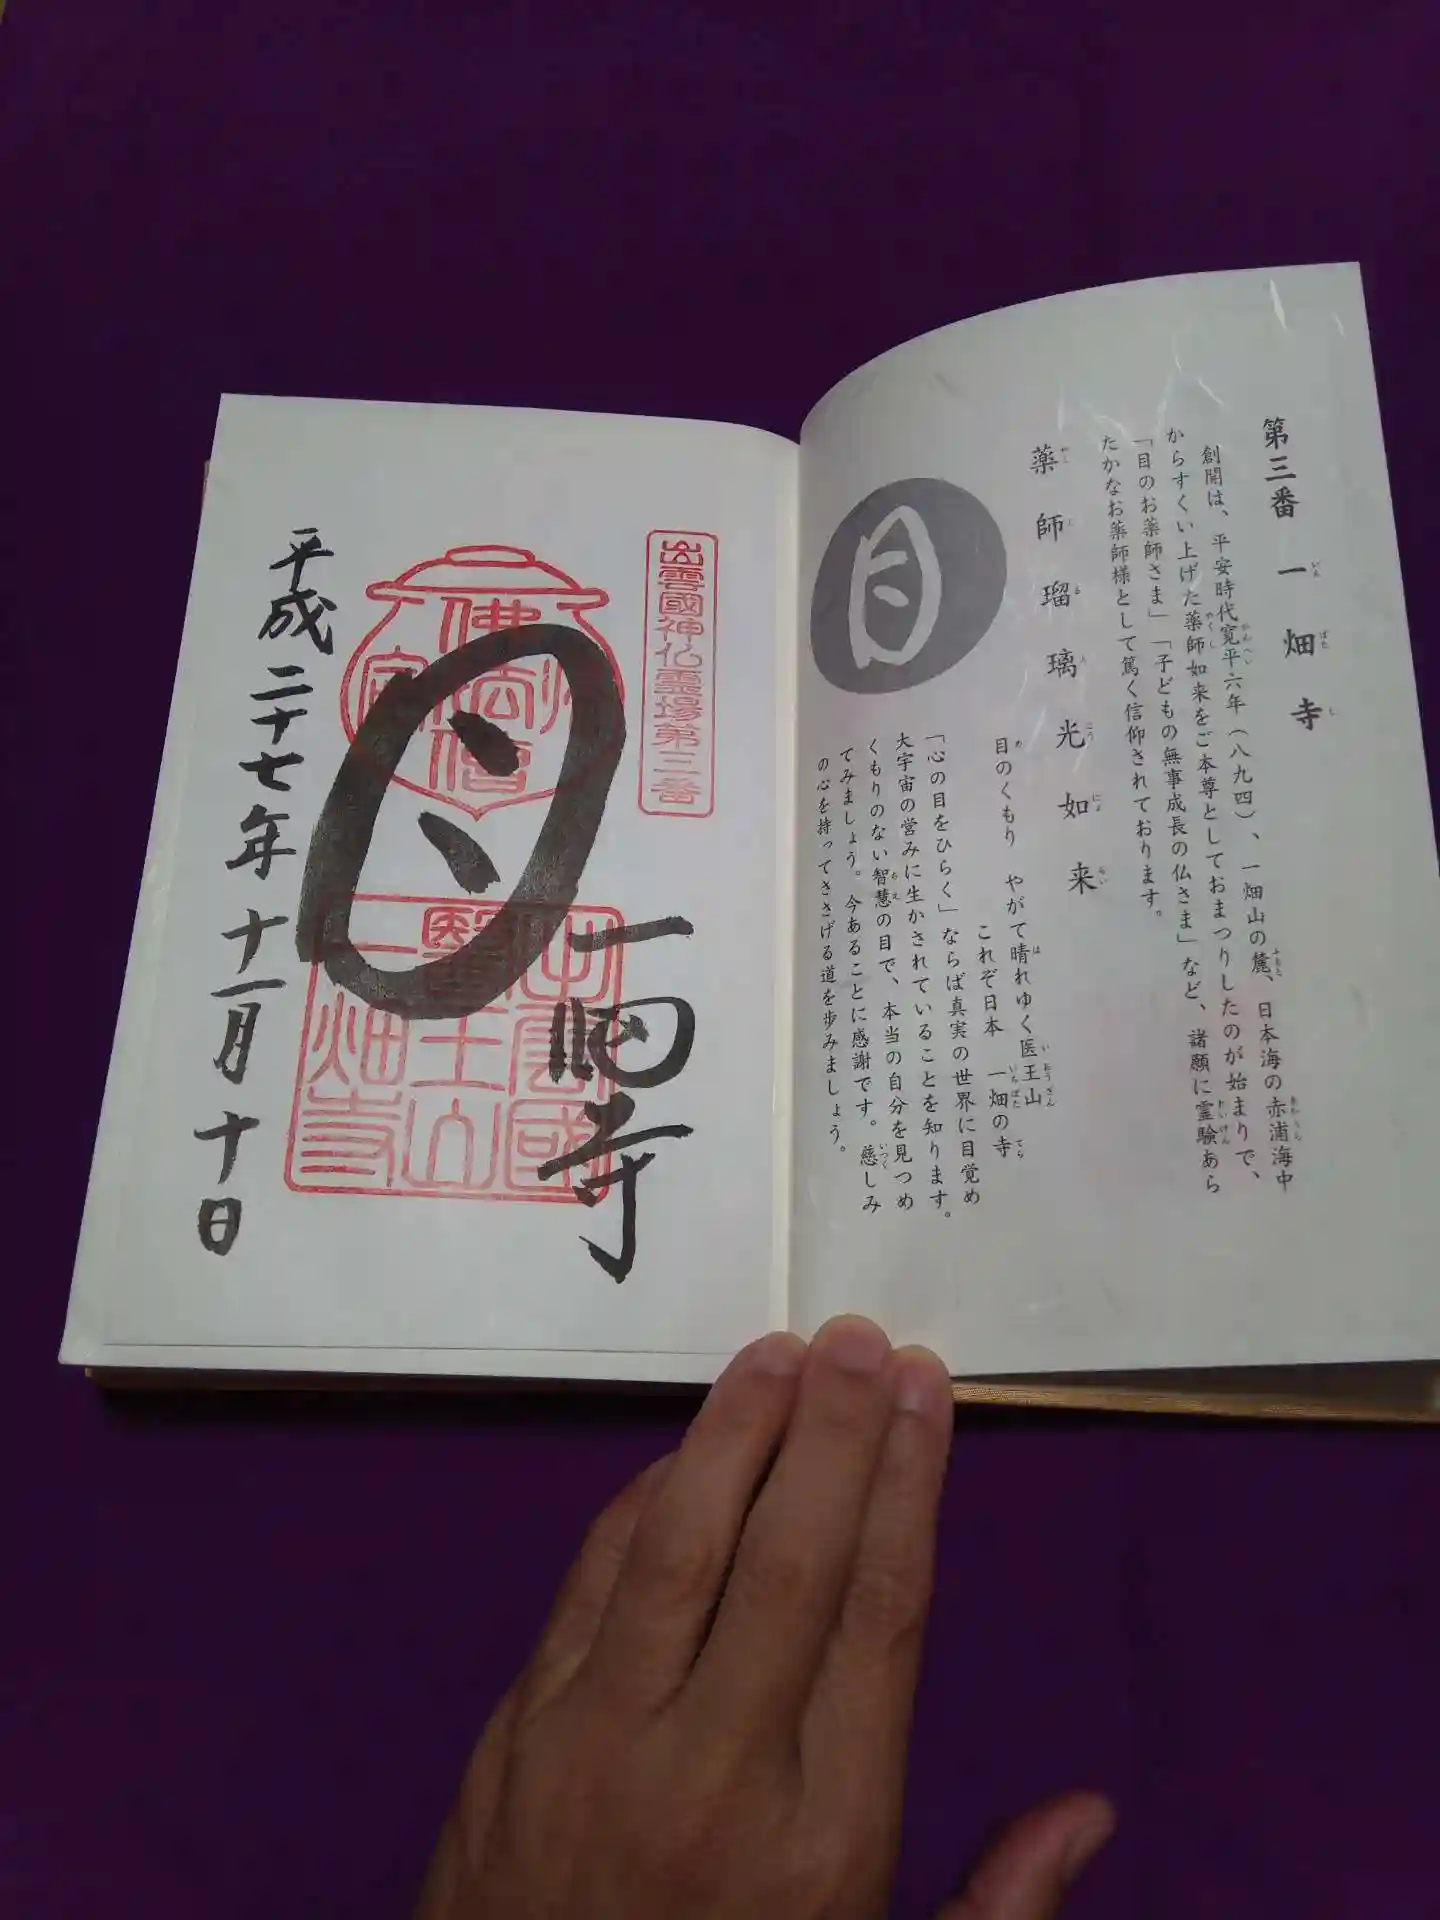 第三番 一畑寺
創開は、平安時代寛平六年（八九四）、一畑山の麓、日本海の赤浦海中
からすくい上げた薬師如来をご本尊としておまつりしたのが始まりで、
「目のお薬師さま」「子どもの無事成長の仏さま」など、諸願に霊験あら
たかなお薬師様として篤く信仰されております。
薬師瑠璃光如来
目
目のくもり やがて晴れゆく医王山
これぞ日本 一畑の寺
「心の目をひらく」ならば真実の世界に目覚め
大宇宙の営みに生かされていることを知ります。
くもりのない智慧の目で、本当の自分を見つめ
てみましょう。今あることに感謝です。慈しみ
の心を持ってささげる道を歩みましょう。
出雲國神仏霊場第三番
一畑寺
目
佛法僧
出雲國
醫王山
一畑寺
平成二十七年十一月十日